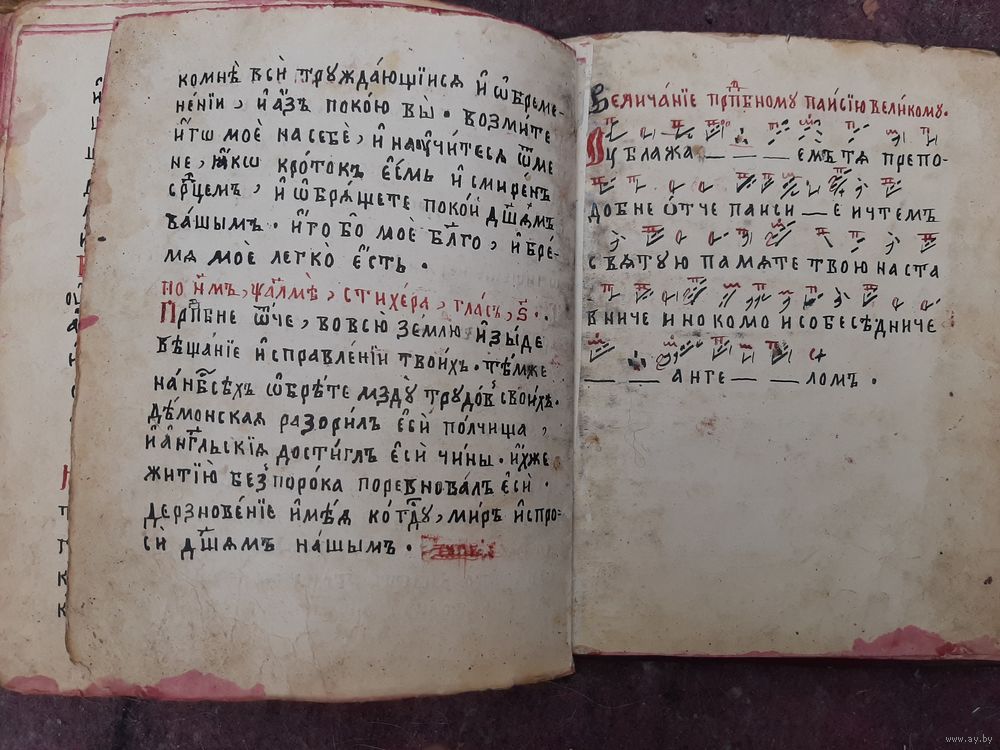 комнѣ всѝ тружда́ющїися и҆ ѡ҆бреме-
не́нїи, и҆ а҆́зъ поко́ю вы̀. возми́те
и҆́гѡ моѐ на себѐ, и҆ научи́теся ѿ ме
не, ꙗ҆́кѡ кро́токъ є҆́смь и҆ смире́нъ
ср҃цемъ, и҆ ѡ҆бря́щете поко́й дш҃а́мъ
ва́шымъ. и҆́го бо̀ моѐ бл҃го, и҆ бре́-
мя моѐ легко̀ є҆́сть.
по н҃мъ, ѱалмѣ̀, стихе́ра, гла́съ, ѕ҃.
Прпⷣбне ѿ́че, во всю̀ зе́млю и҆зы́де
вѣща́нїе и҆справле́нїи твои́хъ. тѣ́мже
на нб҃сѣ́хъ ѡ҆брѣ́те мзду̀ трудо́в свои́хъ.
де́монская разори́лъ є҆сѝ по́лчища,
и҆ а҆́нг҃льскїя дости́глъ є҆сѝ чи́ны. и҆́хже
житїю̀ без̾ поро́ка поревнова́лъ є҆сѝ.
дерзнове́нїе и҆мѣ́я ко гд҃у, ми́ръ и҆спро-
сѝ дш҃а́мъ на́шымъ.
Велича́нїе прпⷣбному паи́сїю вели́кому.
Оублажа — — — емъ тя препо-
добне ѿтче паиси — е и чтемъ
святую память твою наста
вниче иноком и собесѣдниче
— — анге — — ломъ.
www.ay.by